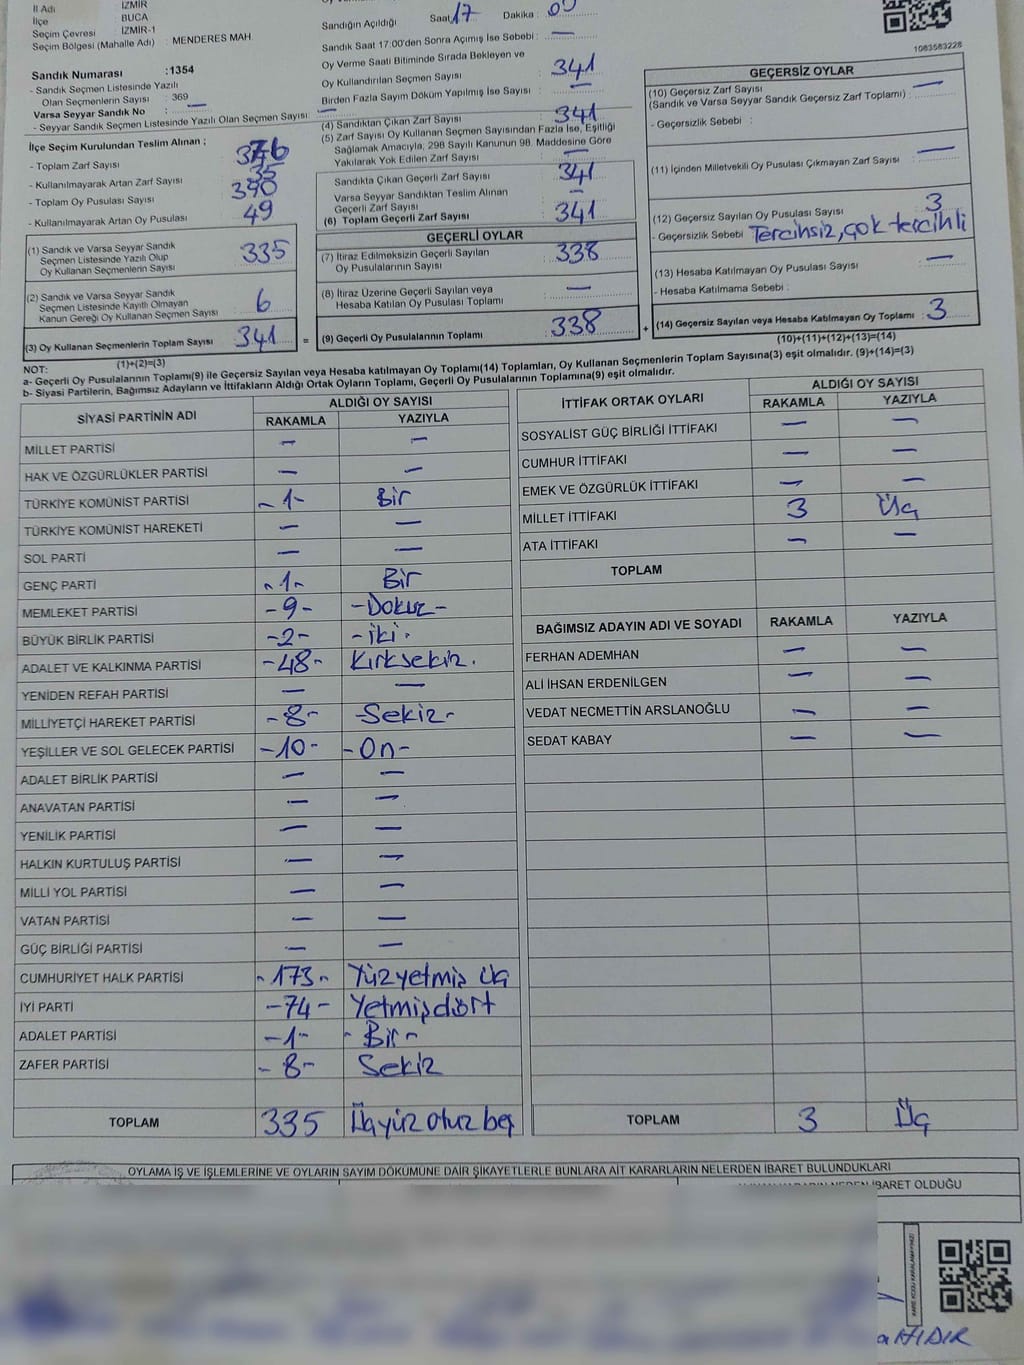 İl Adı : İZMİR
İlçe : BUCA
Seçim Çevresi : İZMİR-1
Seçim Bölgesi (Mahalle Adı) : MENDERES MAH.
Sandık Numarası :1354
- Sandık Seçmen Listesinde Yazılı
Olan Seçmenlerin Sayısı : 369
Varsa Seyyar Sandık No : —
- Seyyar Sandık Seçmen Listesinde Yazılı Olan Seçmen Sayısı: —
İlçe Seçim Kurulundan Teslim Alınan ;
- Toplam Zarf Sayısı
- Kullanılmayarak Artan Zarf Sayısı 35
- Toplam Oy Pusulası Sayısı 390
- Kullanılmayarak Artan Oy Pusulası 49
(1) Sandık ve Varsa Seyyar Sandık
Seçmen Listesinde Yazılı Olup
Oy Kullanan Seçmenlerin Sayısı 335
(2) Sandık ve Varsa Seyyar Sandık
Seçmen Listesinde Kayıtlı Olmayan
Kanun Gereği Oy Kullanan Seçmen Sayısı : 6
(3) Oy Kullanan Seçmenlerin Toplam Sayısı : 341 =
(1)+(2)=(3)
Sandığın Açıldığı Saat 17 Dakika : 00
Sandık Saat 17:00'den Sonra Açımış İse Sebebi : —
Oy Verme Saati Bitiminde Sırada Bekleyen ve
Oy Kullandırılan Seçmen Sayısı : 341
Birden Fazla Sayım Döküm Yapılmış İse Sayısı : —
(4) Sandıktan Çıkan Zarf Sayısı : 341
(5) Zarf Sayısı Oy Kullanan Seçmen Sayısından Fazla İse, Eşitliği
Sağlamak Amacıyla, 298 Sayılı Kanunun 98. Maddesine Göre
Yakılarak Yok Edilen Zarf Sayısı : —
Sandıkta Çıkan Geçerli Zarf Sayısı : 341
Varsa Seyyar Sandıktan Teslim Alınan
Geçerli Zarf Sayısı : —
(6) Toplam Geçerli Zarf Sayısı : 341
GEÇERLİ OYLAR
(7) İtiraz Edilmeksizin Geçerli Sayılan
Oy Pusulalarının Sayısı : 338
(8) İtiraz Üzerine Geçerli Sayılan veya
Hesaba Katılan Oy Pusulası Toplamı : —
(9) Geçerli Oy Pusulalarının Toplamı : 338 +
1083583228
GEÇERSİZ OYLAR
(10) Geçersiz Zarf Sayısı
(Sandık ve Varsa Seyyar Sandık Geçersiz Zarf Toplamı) : —
- Geçersizlik Sebebi :
(11) İçinden Milletvekili Oy Pusulası Çıkmayan Zarf Sayısı : —
(12) Geçersiz Sayılan Oy Pusulası Sayısı : 3
- Geçersizlik Sebebi Tercihsiz, çok tercihli
(13) Hesaba Katılmayan Oy Pusulası Sayısı : —
- Hesaba Katılmama Sebebi :
(14) Geçersiz Sayılan veya Hesaba Katılmayan Oy Toplamı : 3
(10)+(11)+(12)+(13)=(14)
NOT:
a- Geçerli Oy Pusulalarının Toplamı(9) ile Geçersiz Sayılan veya Hesaba katılmayan Oy Toplamı(14) Toplamları, Oy Kullanan Seçmenlerin Toplam Sayısına(3) eşit olmalıdır. (9)+(14)=(3)
b- Siyasi Partilerin, Bağımsız Adayların ve İttifakların Aldığı Ortak Oyların Toplamı, Geçerli Oy Pusulalarının Toplamına(9) eşit olmalıdır.
SİYASİ PARTİNİN ADI ALDIĞI OY SAYISI
RAKAMLA YAZIYLA
MİLLET PARTİSİ — —
HAK VE ÖZGÜRLÜKLER PARTİSİ — —
TÜRKİYE KOMÜNİST PARTİSİ -1- Bir
TÜRKİYE KOMÜNİST HAREKETİ — —
SOL PARTİ — —
GENÇ PARTİ -1- Bir
MEMLEKET PARTİSİ -9- -Dokuz-
BÜYÜK BİRLİK PARTİSİ -2- -iki-
ADALET VE KALKINMA PARTİSİ -48- Kırksekiz.
YENİDEN REFAH PARTİSİ — —
MİLLİYETÇİ HAREKET PARTİSİ -8- -Sekiz-
YEŞİLLER VE SOL GELECEK PARTİSİ -10- -On-
ADALET BİRLİK PARTİSİ — —
ANAVATAN PARTİSİ — —
YENİLİK PARTİSİ — —
HALKIN KURTULUŞ PARTİSİ — —
MİLLİ YOL PARTİSİ — —
VATAN PARTİSİ — —
GÜÇ BİRLİĞİ PARTİSİ — —
CUMHURİYET HALK PARTİSİ -173- Yüzyetmiş üç
İYİ PARTİ -74- Yetmişdört
ADALET PARTİSİ -1- -Bir-
ZAFER PARTİSİ -8- Sekiz
TOPLAM 335 Üçyüz otuz beş
İTTİFAK ORTAK OYLARI ALDIĞI OY SAYISI
RAKAMLA YAZIYLA
SOSYALİST GÜÇ BİRLİĞİ İTTİFAKI — —
CUMHUR İTTİFAKI — —
EMEK VE ÖZGÜRLÜK İTTİFAKI — —
MİLLET İTTİFAKI 3 Üç
ATA İTTİFAKI — —
TOPLAM
BAĞIMSIZ ADAYIN ADI VE SOYADI RAKAMLA YAZIYLA
FERHAN ADEMHAN — —
ALİ İHSAN ERDENİLGEN — —
VEDAT NECMETTİN ARSLANOĞLU — —
SEDAT KABAY — —
TOPLAM 3 Üç
OYLAMA İŞ VE İŞLEMLERİNE VE OYLARIN SAYIM DÖKÜMÜNE DAİR ŞİKAYETLERLE BUNLARA AİT KARARLARIN NELERDEN İBARET BULUNDUKLARI
İBARET OLDUĞU
HIDIR